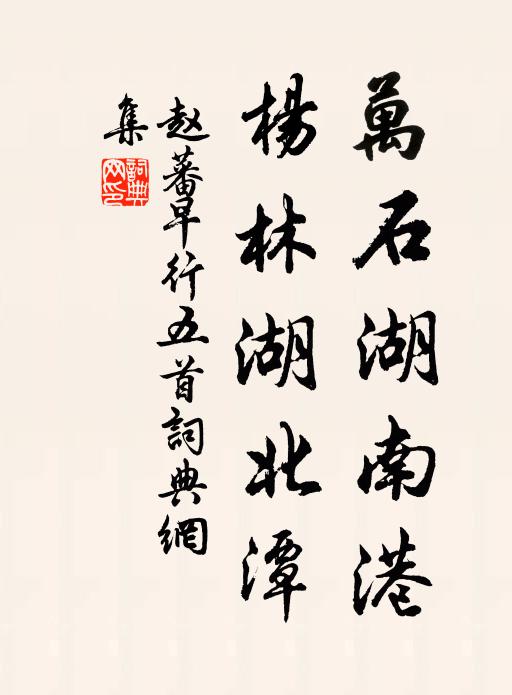 萬石湖南港
楊林湖北潭
赵蕃早行五首詞典網
集
詞典網印